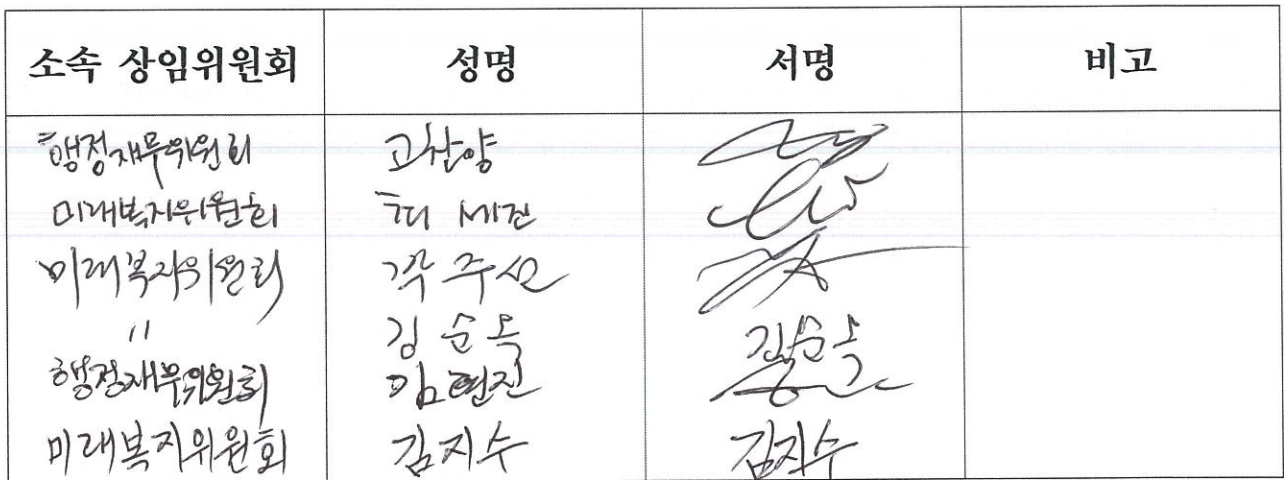 소속 상임위원회 성명 서명 비고
행정재무위원회 고찬양
미래복지위원회 최세진
미래복지위원회 주선
〃 김순옥 김순옥
행정재무위원회 임현진
미래복지위원회 김지수 김지수